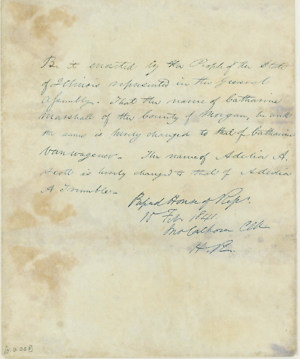 Be it enacted by the People of the State
of Illinois represented in the General
Assembly. That the name of Catharine
Marshall of the County of Morgan, be and
the same is hereby changed to that of Catharine
Vanwagener. The name of Adelia A.
is hereby changed to that of Adelia
A Trumbler
Passed House of Reps.
15 Feby 1841
Jno Calhoun Clk
H. R.